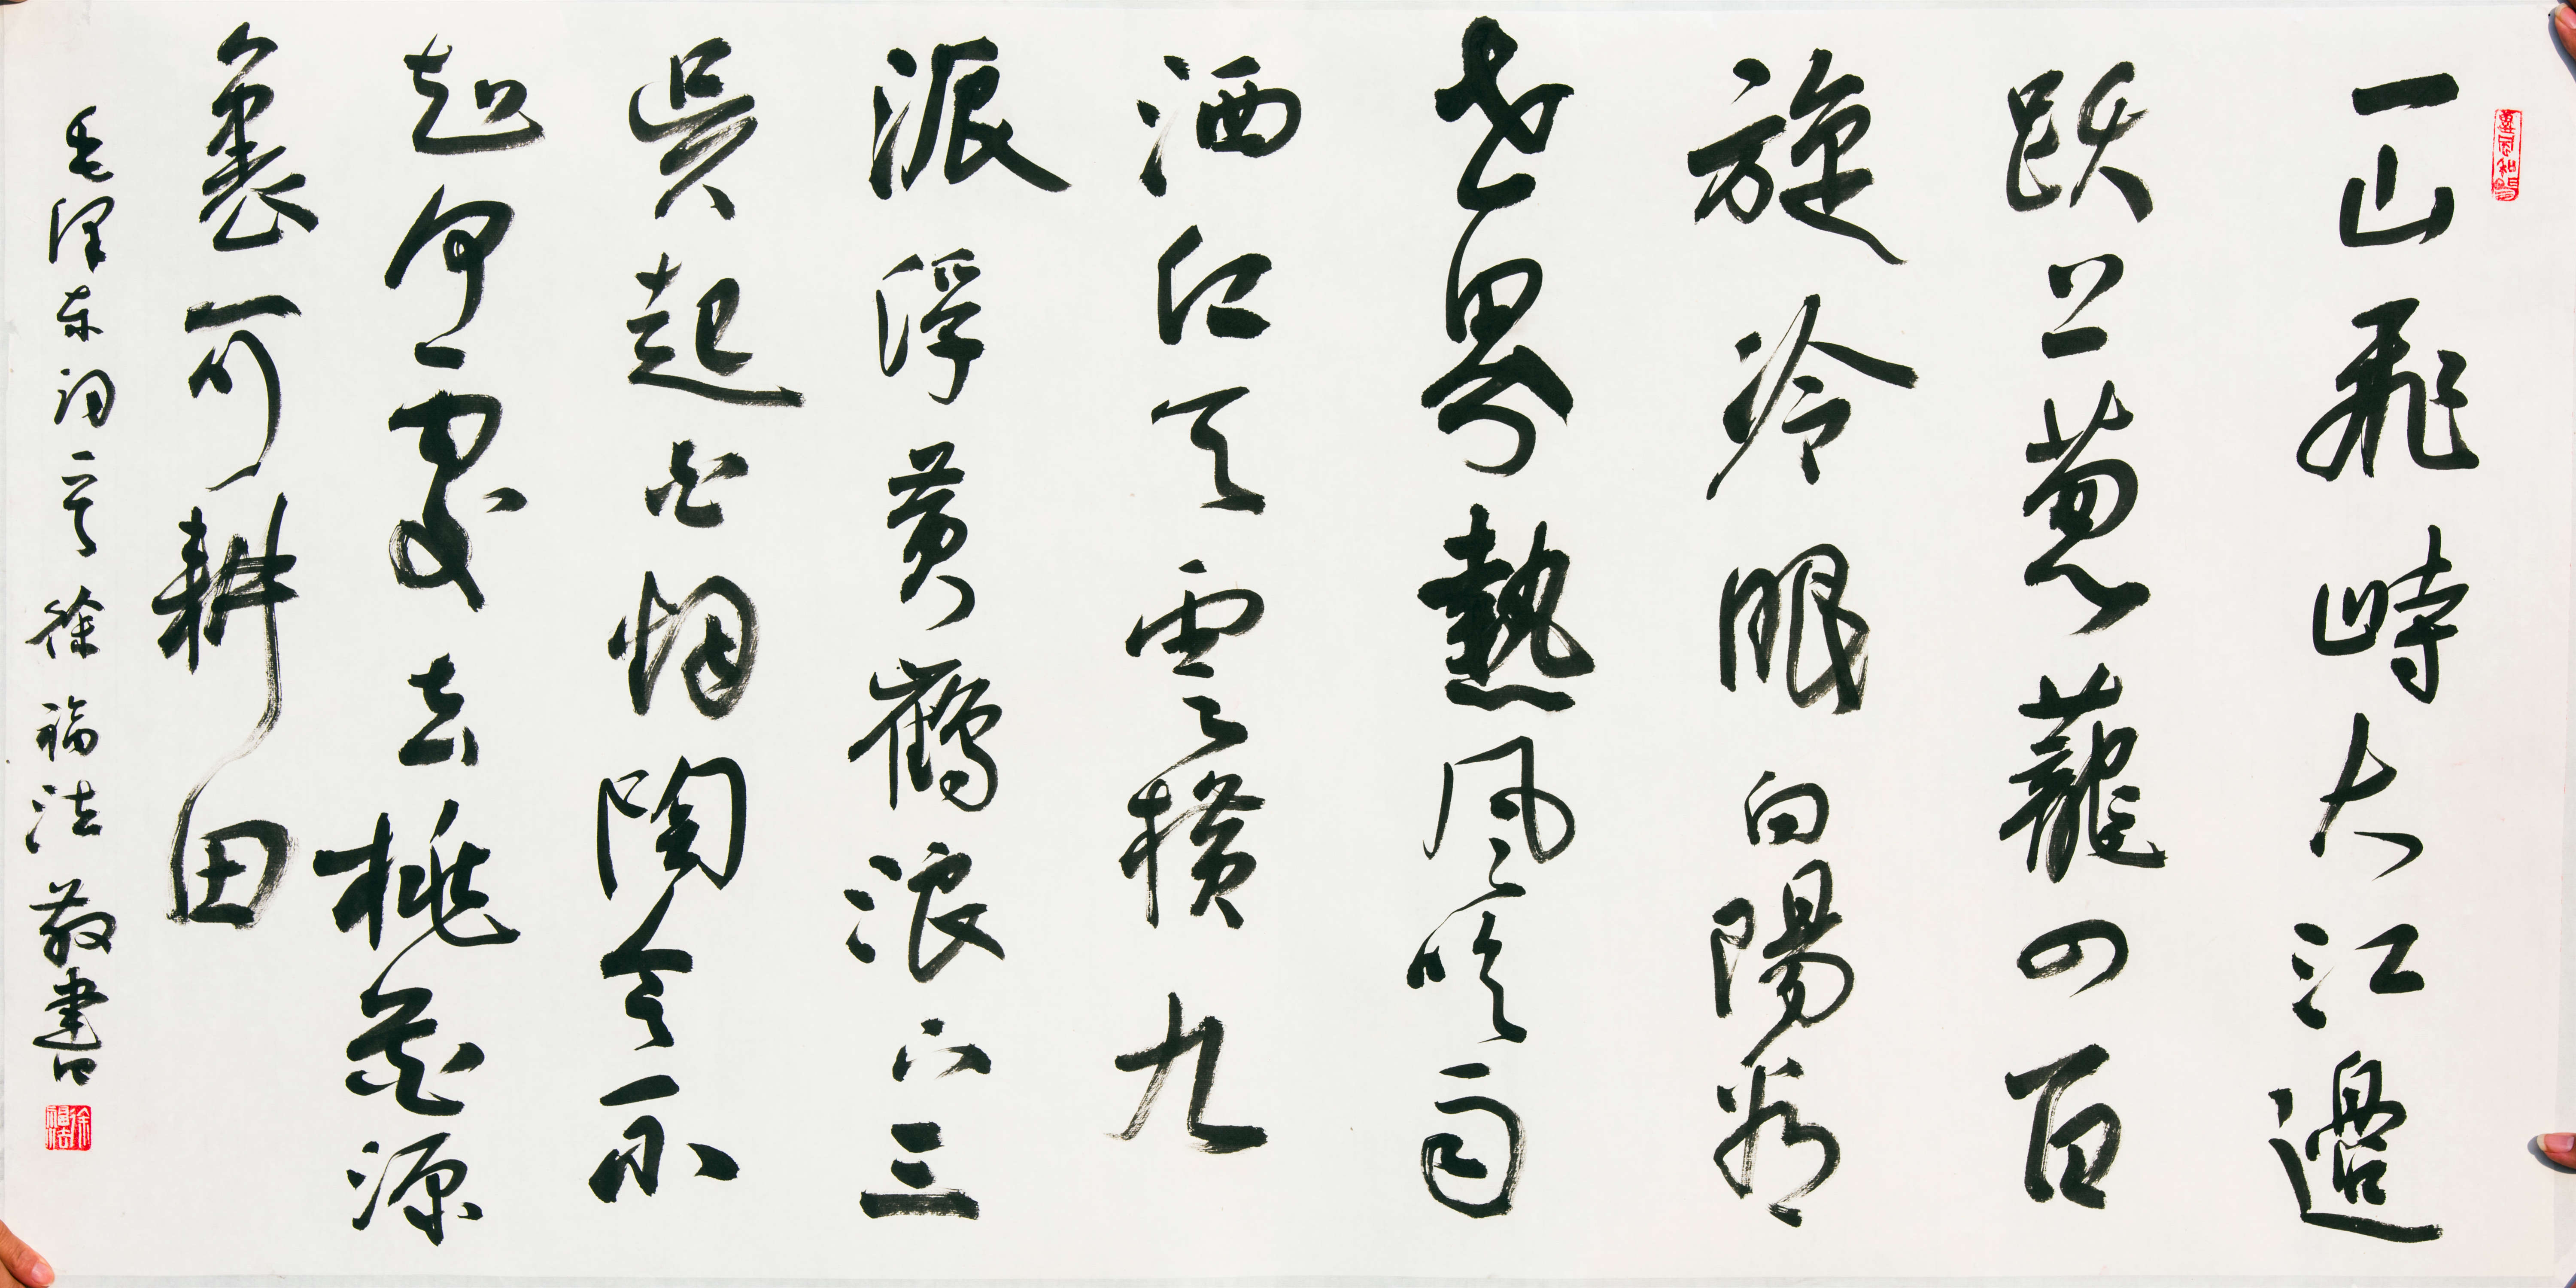 一山飛峙大江邊
跃上葱蘢四百
旋冷眼向陽看
世界熱風吹雨
洒江天雲橫九
派浮黄鶴浪下三
吳起白烟陶令不
知何處去桃花源
裏可耕田
毛澤東詞一首 徐福法敬書
徐福法